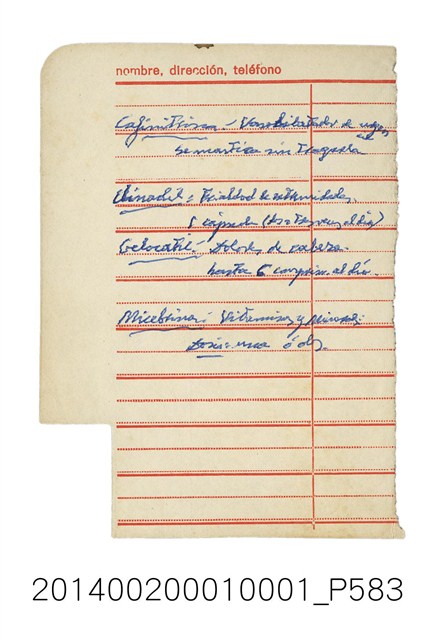 nombre, dirección, teléfono
Cafinitrina: Vasodilatador de
se mastica sin tragarla
Clinadil: Frialdad de extremidades.
1 cápsula (dos o tres veces al día)
Gelocatil: Dolores de cabeza.
hasta 6 comprim. al día.
Micebrina: Vitaminas y Minerales:
dosis: una ó dos.
201400200010001_P583